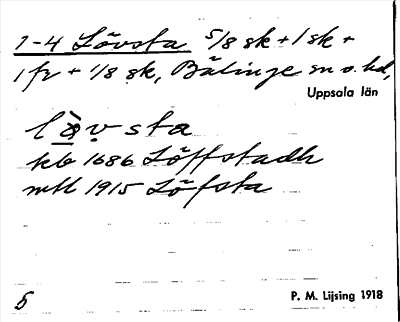 1-4 Lövsta 5/8 sk + 1 sk +
1 fr + 1/8 sk, Bälinge sn o. hd,
Uppsala län
lö̀vsta
kb 1686 Löffstadh
mtl 1915 Löfsta
5
P. M. Lijsing 1918